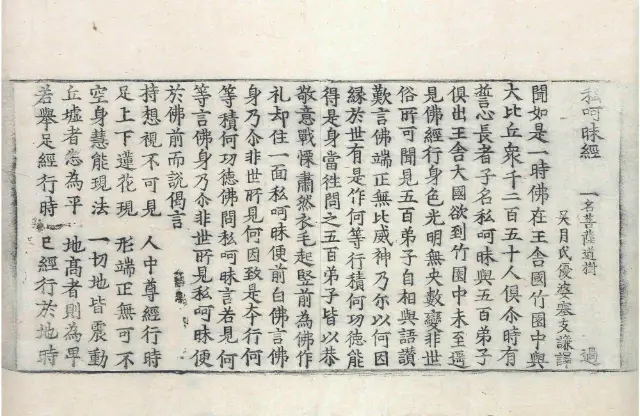 私呵昧經 一名菩薩道樹 過
吳月氏優婆塞支謙譯
聞如是一時佛在王舍國竹園中與
大比丘衆千二百五十人俱尒時有
誓心長者子名私呵昧與五百弟子
俱出王舍大國欲到竹園中未至遥
見佛經行身色光明無央數變非世
俗所可聞見五百弟子自相與語讚
歎言佛端正無比威神乃尒以何因
縁於世有是作何等行積何功德能
得是身當往問之五百弟子皆以恭
敬意戰慄肅然衣毛起竪前為佛作
礼却住一面私呵昧便前白佛言佛
身乃尒非世所見何因致是夲行何
等積何功德佛問私呵昧言若見何
等言佛身乃尒非世所見私呵昧便
於佛前而說偈言
持想視不可見 人中尊經行時
足上下蓮花現 形端正無可不
空身慧能現法 一切地皆震動
丘墟者悉為平 地高者則為卑
若舉足經行時 已經行於地時